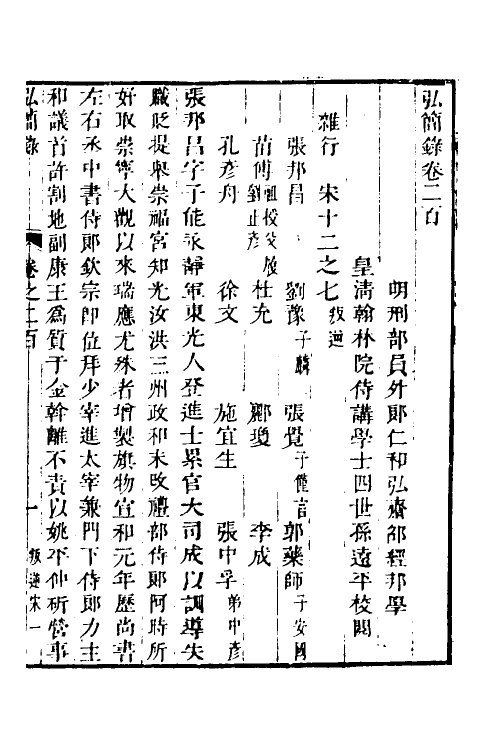 弘簡錄卷二百
明刑部員外郎仁和弘齋邵經邦學
皇清翰林院侍講學士四世孫遠平校閱
雜行 宋十二之七 叛逆
張邦昌 劉豫 子麟 張覺 子僅言 郭藥師 子安國
苗傅 劉正彥 杜充 酈瓊 李成
孔彥舟 徐文 施宜生 張中孚 弟中彥
張邦昌字子能永靜軍東光人登進士累官大司成以訓導失
職貶提舉崇福宮知光汝洪三州政和末改禮部侍郎阿時所
好取崇寧大觀以來瑞應尤殊者增製旗物宣和元年歷尚書
左右丞中書侍郎欽宗即位拜少宰進太宰兼門下侍郎力主
和議首許割地副康王爲質于金幹離不責以姚平仲斫營事
弘簡錄 卷之二百 一 叛逆宋一